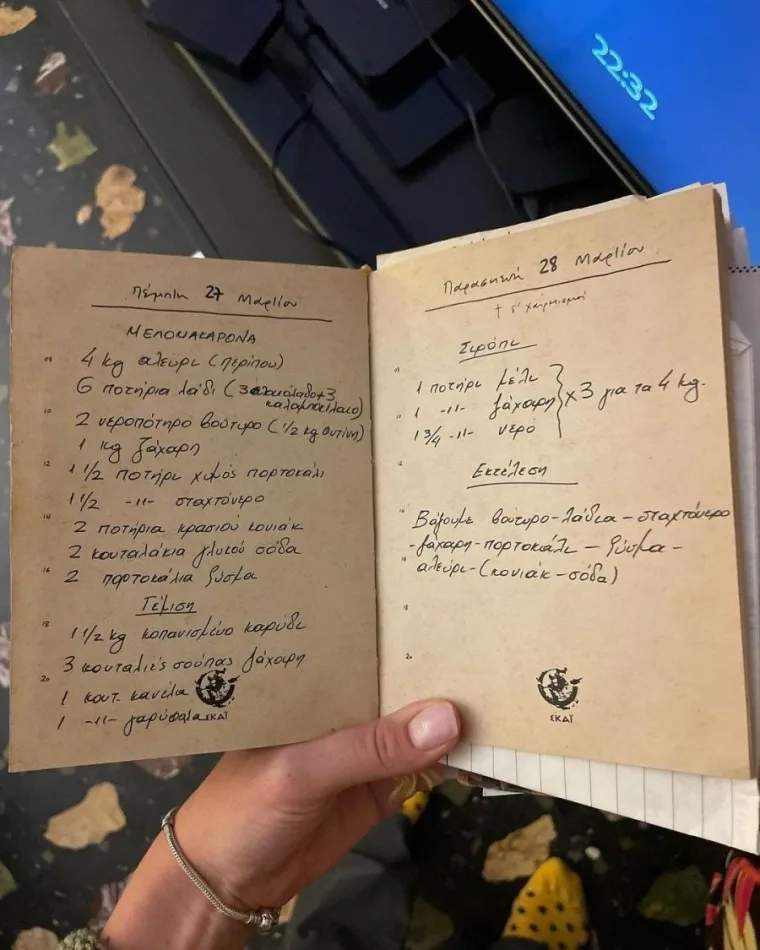 22:32
Πέμπτη 27 Μαρτίου
ΜΕΛΟΜΑΚΑΡΟΝΑ
4 kg αλεύρι (περίπου)
6 ποτήρια λάδι (3 ελαιόλαδο + 3
καλαμποκέλαιο)
2 νεροπότηρο βούτυρο (1/2 kg φυτίνη)
1 kg ζάχαρη
1 1/2 ποτήρι χυμός πορτοκάλι
1 1/2 -11- σταχτόνερο
2 ποτήρια κρασιού κονιάκ
2 κουταλάκια γλυκού σόδα
2 πορτοκάλια ξύσμα
Γέμιση
1 1/2 kg κοπανισμένο καρύδι
3 κουταλιές σούπας ζάχαρη
1 κουτ. κανέλα
1 -11- γαρύφαλα
ΣΚΑΪ
08
10
12
14
16
18
20
Παρασκευή 28 Μαρτίου
† Γ' Χαιρετισμοί
Σιρόπι
1 ποτήρι μέλι
1 -11- ζάχαρη } x 3 για τα 4 kg.
1 3/4 -11- νερό
Εκτέλεση
Βάζουμε βούτυρο - λάδια - σταχτόνερο
- ζάχαρη - πορτοκάλι - ξύσμα -
αλεύρι - (κονιάκ - σόδα)
18
20
ΣΚΑΪ